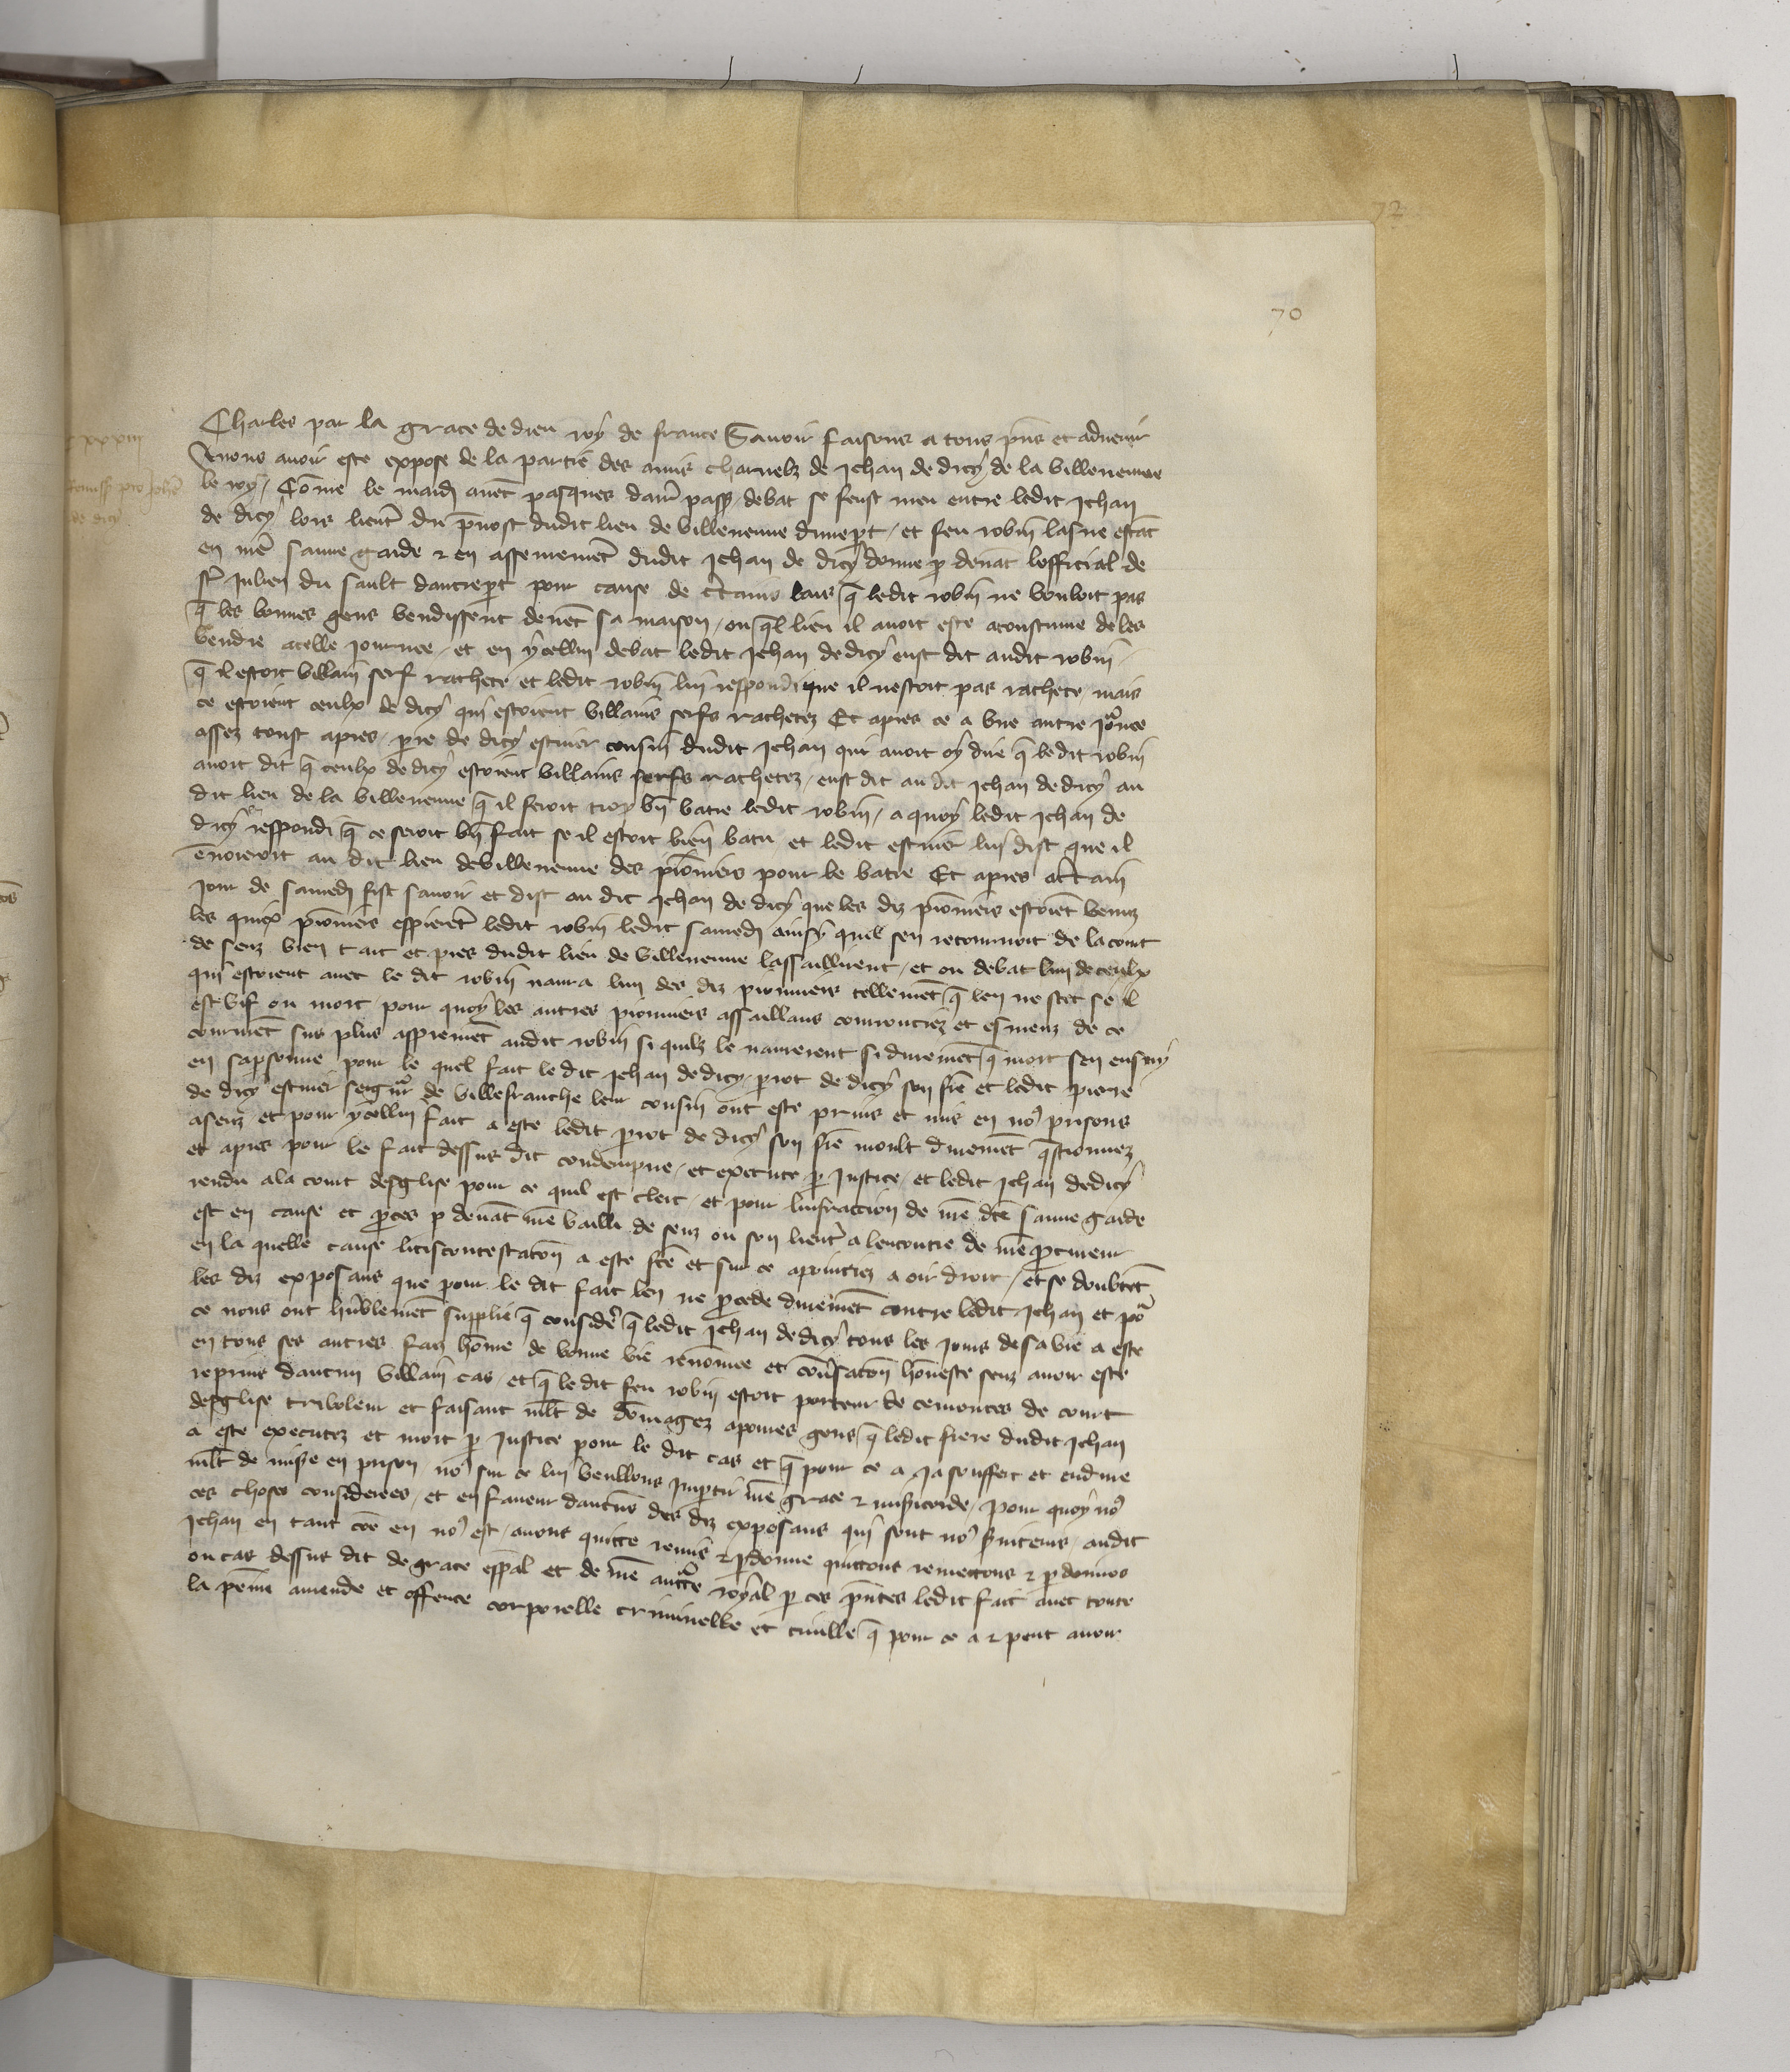 72
70
xxxiii
Remiss. pro Johẽ
de dicy
Charles par la grace de dieu roy de france Sauoir faisons a tous pñs et aduenir
Nous auoir este expose de la partie des amis charnelz de Jehan de dicy de la villeneuue
le roy / Cõme le mardj auãt pasques darr̃ passe debat se feust meu entre ledit Jehan
de dicy lors lieuteñ du p̃uost dudit lieu de villeneuue dune p̱t / et feu robin lasne estãt
en nr̃e sauue garde ⁊ en asseuremẽt dudit Jehan de dicy donne p̱ deuãt lofficial de
st̃ Julien du sault dautre p̱t pour cause de c̃tains lais q̃ ledit robin ne vouloit pas
q̃ les bonnes gens vendissent deuãt sa maison / ou q̃l lieu il auoit este acoustume de les
vendre a celle journee / et en ycellui debat ledit Jehan de dicy eust dit audit robin /
q̃ il estoit villain serf rachete et ledit robin lui respondi que il nestoit pas rachete / mais
ce estoient ceulx de dicy qui estoient villains serfs rachetez Et apres ce a vne autre jo͛nee
assez tost apres / p̱re de dicy escuier cousin dudit Jehan qui auoit oy dire q̃ ledit robin
auoit dit q̃ ceulx de dicy estoient villains serfs rachetez / eust dit au dit Jehan de dicy au
dit lieu de la villeneuue q̃ il feroit troẏ bñ batre ledit robin / a quoy ledit Jehan de
dicy respondi q̃ ce seroit bñ fait se il estoit bien batu et ledit escuier lui dist que il
ẽuoieroit au dit lieu de villeneuue des piõniers pour le batre Et apres c̃tain
jour de samedj fist sauoir et dist au dit Jehan de dicy que les diz piõniers estoiẽt venuz
les quiex piõniers espierẽt ledit robin ledit samedj ainsy quil sen retournoit de la court
de senz bien tart et pres dudit lieu de villeneuue lassaillirent / et ou debat lun de ceulx
qui estoient auec le dit robin naura lun des diz pionniers tellemẽt q̃ len ne scet se il
est vif ou mort pour quoy les autres pionniers assaillans courrouciez et esmeuz de ce
coururẽt sus plus aspremẽt audit robin si quilz le naurerent si duremẽt q̃ mort sen ensuy
en sa p̱sonne pour le quel fait le dit Jehan de dicy / p̱rot de dicy son fre͂ et ledit pierre
de dicy escuier seign͛ de villefranche leur cousin ont este prins et mis en noz prisons
a senz et pour ycellui fait a este ledit p̱rot de dicy son fre͂ moult duremẽt q̃stionnez
et apres pour le fait dessus dit condempne / et execute p̱ Justice / et ledit Jehan de dicy
rendu a la court desglise pour ce quil est clerc / et pour linfraccion de nr̃e dc̃e sauue garde
est en cause et p̱ces p̱ deuãt nr̃e bailli de senz ou son lieuteñ a lencontre de nr̃e p̱cureur
en la quelle cause litiscontestaco͂n a este fc͂e et sur ce apointiez a oir droit / et se doubtẽt
les diz exposans que pour le dit fait len ne p̱cede duremẽt contre ledit Jehan et po͛
ce nous ont hũblemẽt supplie q̃ consider̃ q̃ ledit Jehan de dicy tous les jours de sa vie a este
en tous ses autres faiz hõme de bonne vie renõmee et cõũsaco͂n hõneste senz auoir este
reprins daucun villain cas / et q̃ le dit feu robin estoit porteur de cemonces de court
desglise triboleur et faisant mlt̃ de dõmagez a poures gens q̃ ledit frere dudit Jehan
a este executez et mort p̱ Justice pour le dit cas et q̃ pour ce a ja souffert et endure
mlt̃ de misere en prison no͛ sur ce lui veullons imp̱tir nr̃e grace ⁊ misericorde / pour quoy no͛
ces choses considerees / et en faueur daucuns des diz exposans qui sont noz s̃uiteurs / audit
Jehan en tant cõe en no͛ est / auons quitte remis ⁊ p̱donne quittons remettons ⁊ p̱donnos
ou cas dessus dit de grace esp̃al et de nr̃e auct͛e royal p̱ ces p̃ntes ledit fait auec toute
la peine amende et offence corporelle criminelle et ciuille q̃ pour ce a ⁊ peut auoir